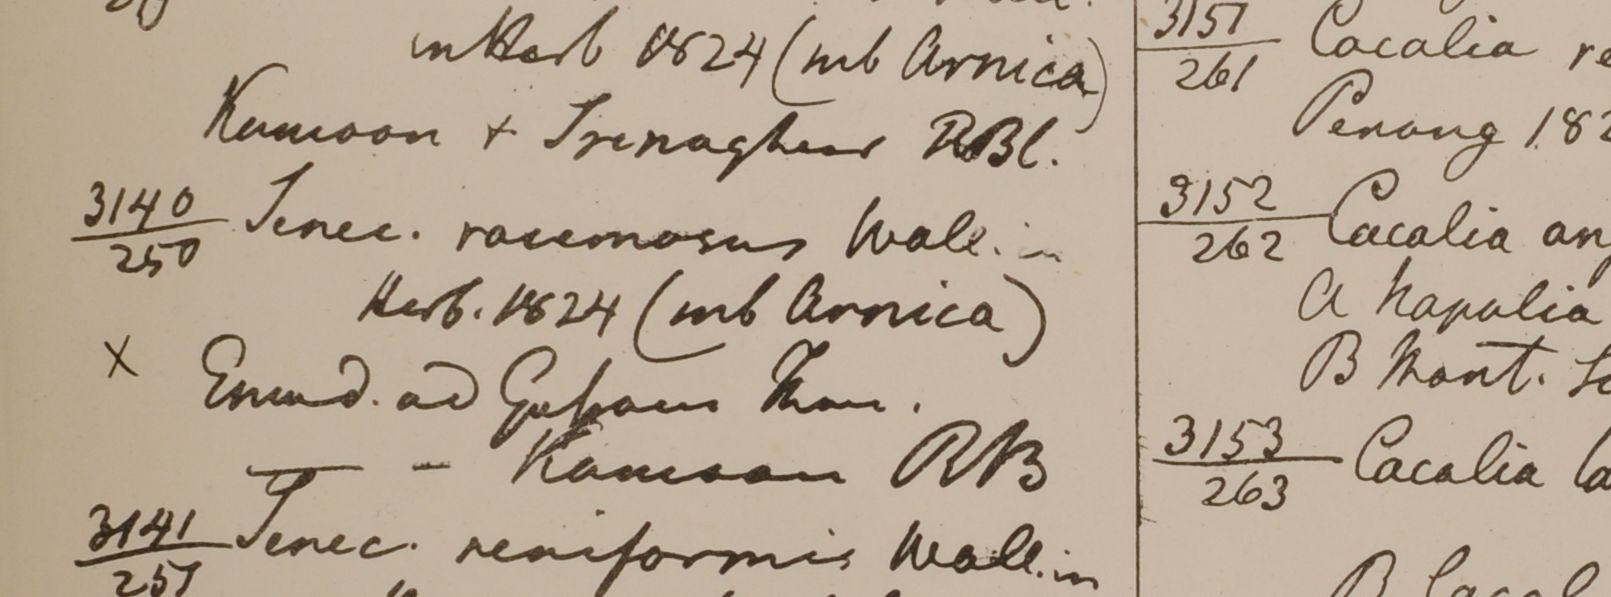 in Herb 1824 (sub Arnica)
Kumaon + Srenaghur RBl.
3140
250
Senec. racemosus Wall. in
Herb. 1824 (sub Arnica)
x
ad Kumaon RB
3141
251
Senec. reniformis Wall. in
3151
261
Cacalia
Penang 182
3152
262
Cacalia an
A Napalia
B Mont.
3153
263
Cacalia
B Cacal